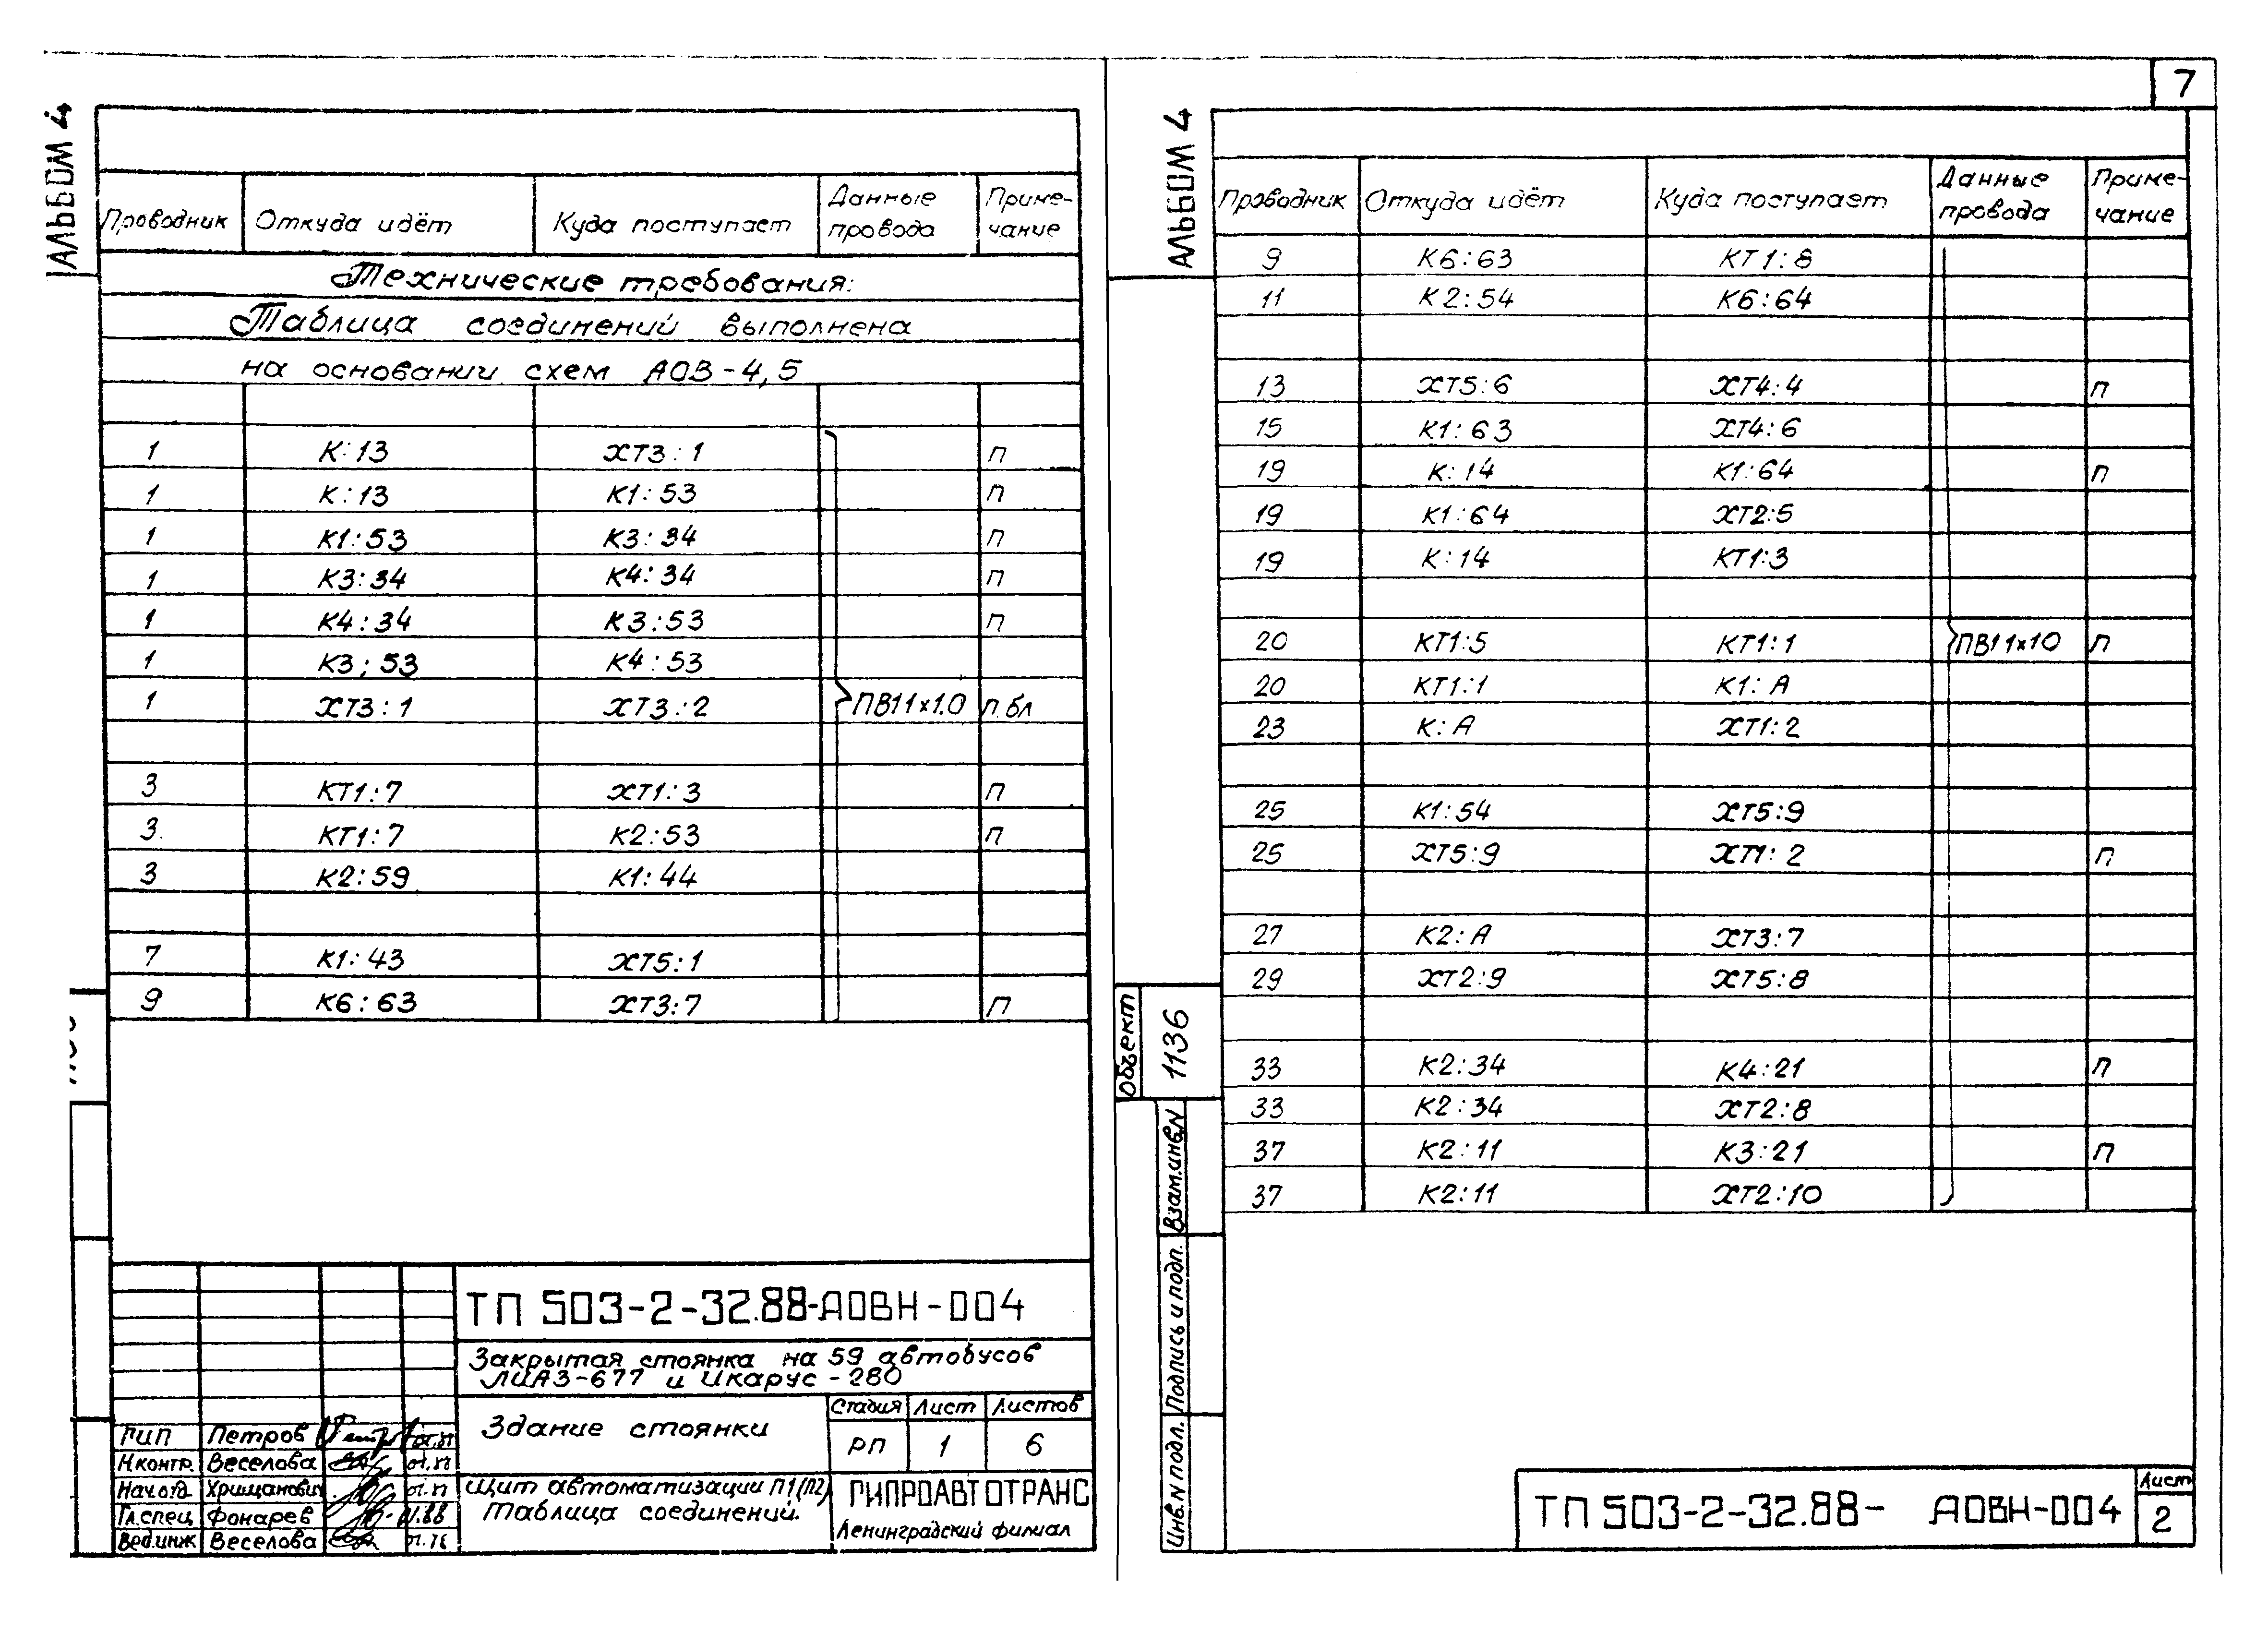 7
АЛЬБОМ 4
Проводник Откуда идёт Куда поступает Данные провода Примечание
Технические требования:
Таблица соединений выполнена
на основании схем АОВ-4,5
1 К:13 ХТ3:1 П
1 К:13 К1:53 П
1 К1:53 К3:34 П
1 К3:34 К4:34 П
1 К4:34 К3:53 П
1 К3:53 К4:53
1 ХТ3:1 ХТ3:2 ПВ1 1х1.0 П.бл
3 КТ1:7 ХТ1:3 П
3 КТ1:7 К2:53 П
3 К2:59 К1:44
7 К1:43 ХТ5:1
9 К6:63 ХТ3:7 П
ТП 503-2-32.88-АОВН-004
Закрытая стоянка на 59 автобусов
ЛИАЗ-677 и Икарус-280
Здание стоянки
Стадия Лист Листов
РП 1 6
Щит автоматизации П1(П2)
Таблица соединений.
ГИПРОАВТОТРАНС
Ленинградский филиал
ГИП Петров
Н.контр. Веселова
Нач.отд. Хрищанович
Гл.спец. Фонарев
Вед.инж Веселова
АЛЬБОМ 4
Проводник Откуда идёт Куда поступает Данные провода Примечание
9 К6:63 КТ1:8
11 К2:54 К6:64
13 ХТ5:6 ХТ4:4 П
15 К1:63 ХТ4:6
19 К:14 К1:64 П
19 К1:64 ХТ2:5
19 К:14 КТ1:3
20 КТ1:5 КТ1:1 ПВ1 1х10 П
20 КТ1:1 К1:А
23 К:А ХТ1:2
25 К1:54 ХТ5:9
25 ХТ5:9 ХТ1:2 П
27 К2:А ХТ3:7
29 ХТ2:9 ХТ5:8
33 К2:34 К4:21 П
33 К2:34 ХТ2:8
37 К2:11 К3:21 П
37 К2:11 ХТ2:10
Объект 1136
Взам.инв.N
Подпись и подп.
Инв.N подл.
ТП 503-2-32.88- АОВН-004
Лист
2